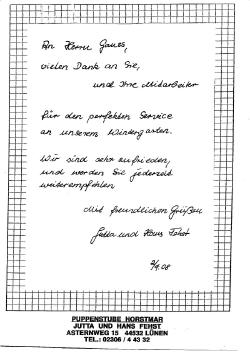 An Herrn Gawes,
vielen Dank an Sie,
und Ihre Mitarbeiter
für den perfekten Service
an unserem Wintergarten.
Wir sind sehr zufrieden,
und werden Sie jederzeit
weiterempfehlen
Mit freundlichen Grüßen
Jutta und Hans Fehst
PUPPENSTUBE HORSTMAR
JUTTA UND HANS FEHST
ASTERNWEG 15 44532 LÜNEN
TEL.: 02306 / 4 43 32